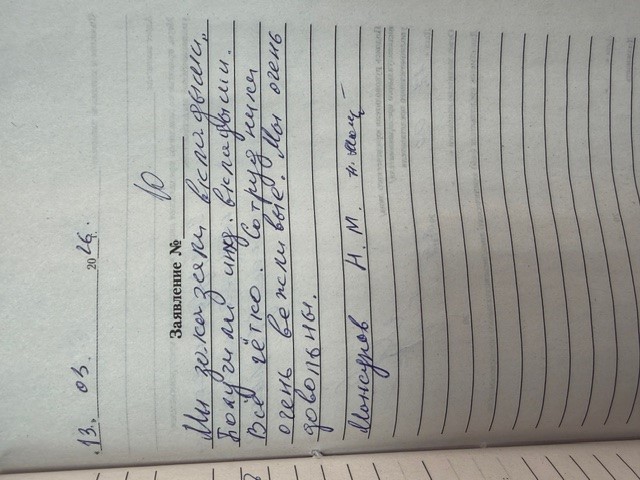 "13" 03. 2026.
Заявление № 10
Мы заказали вкладыши,
Получили инд. вкладыши.
Всё чётко. Сотрудники
очень вежливые. Мы очень
довольны.
Мансуров Н. М.